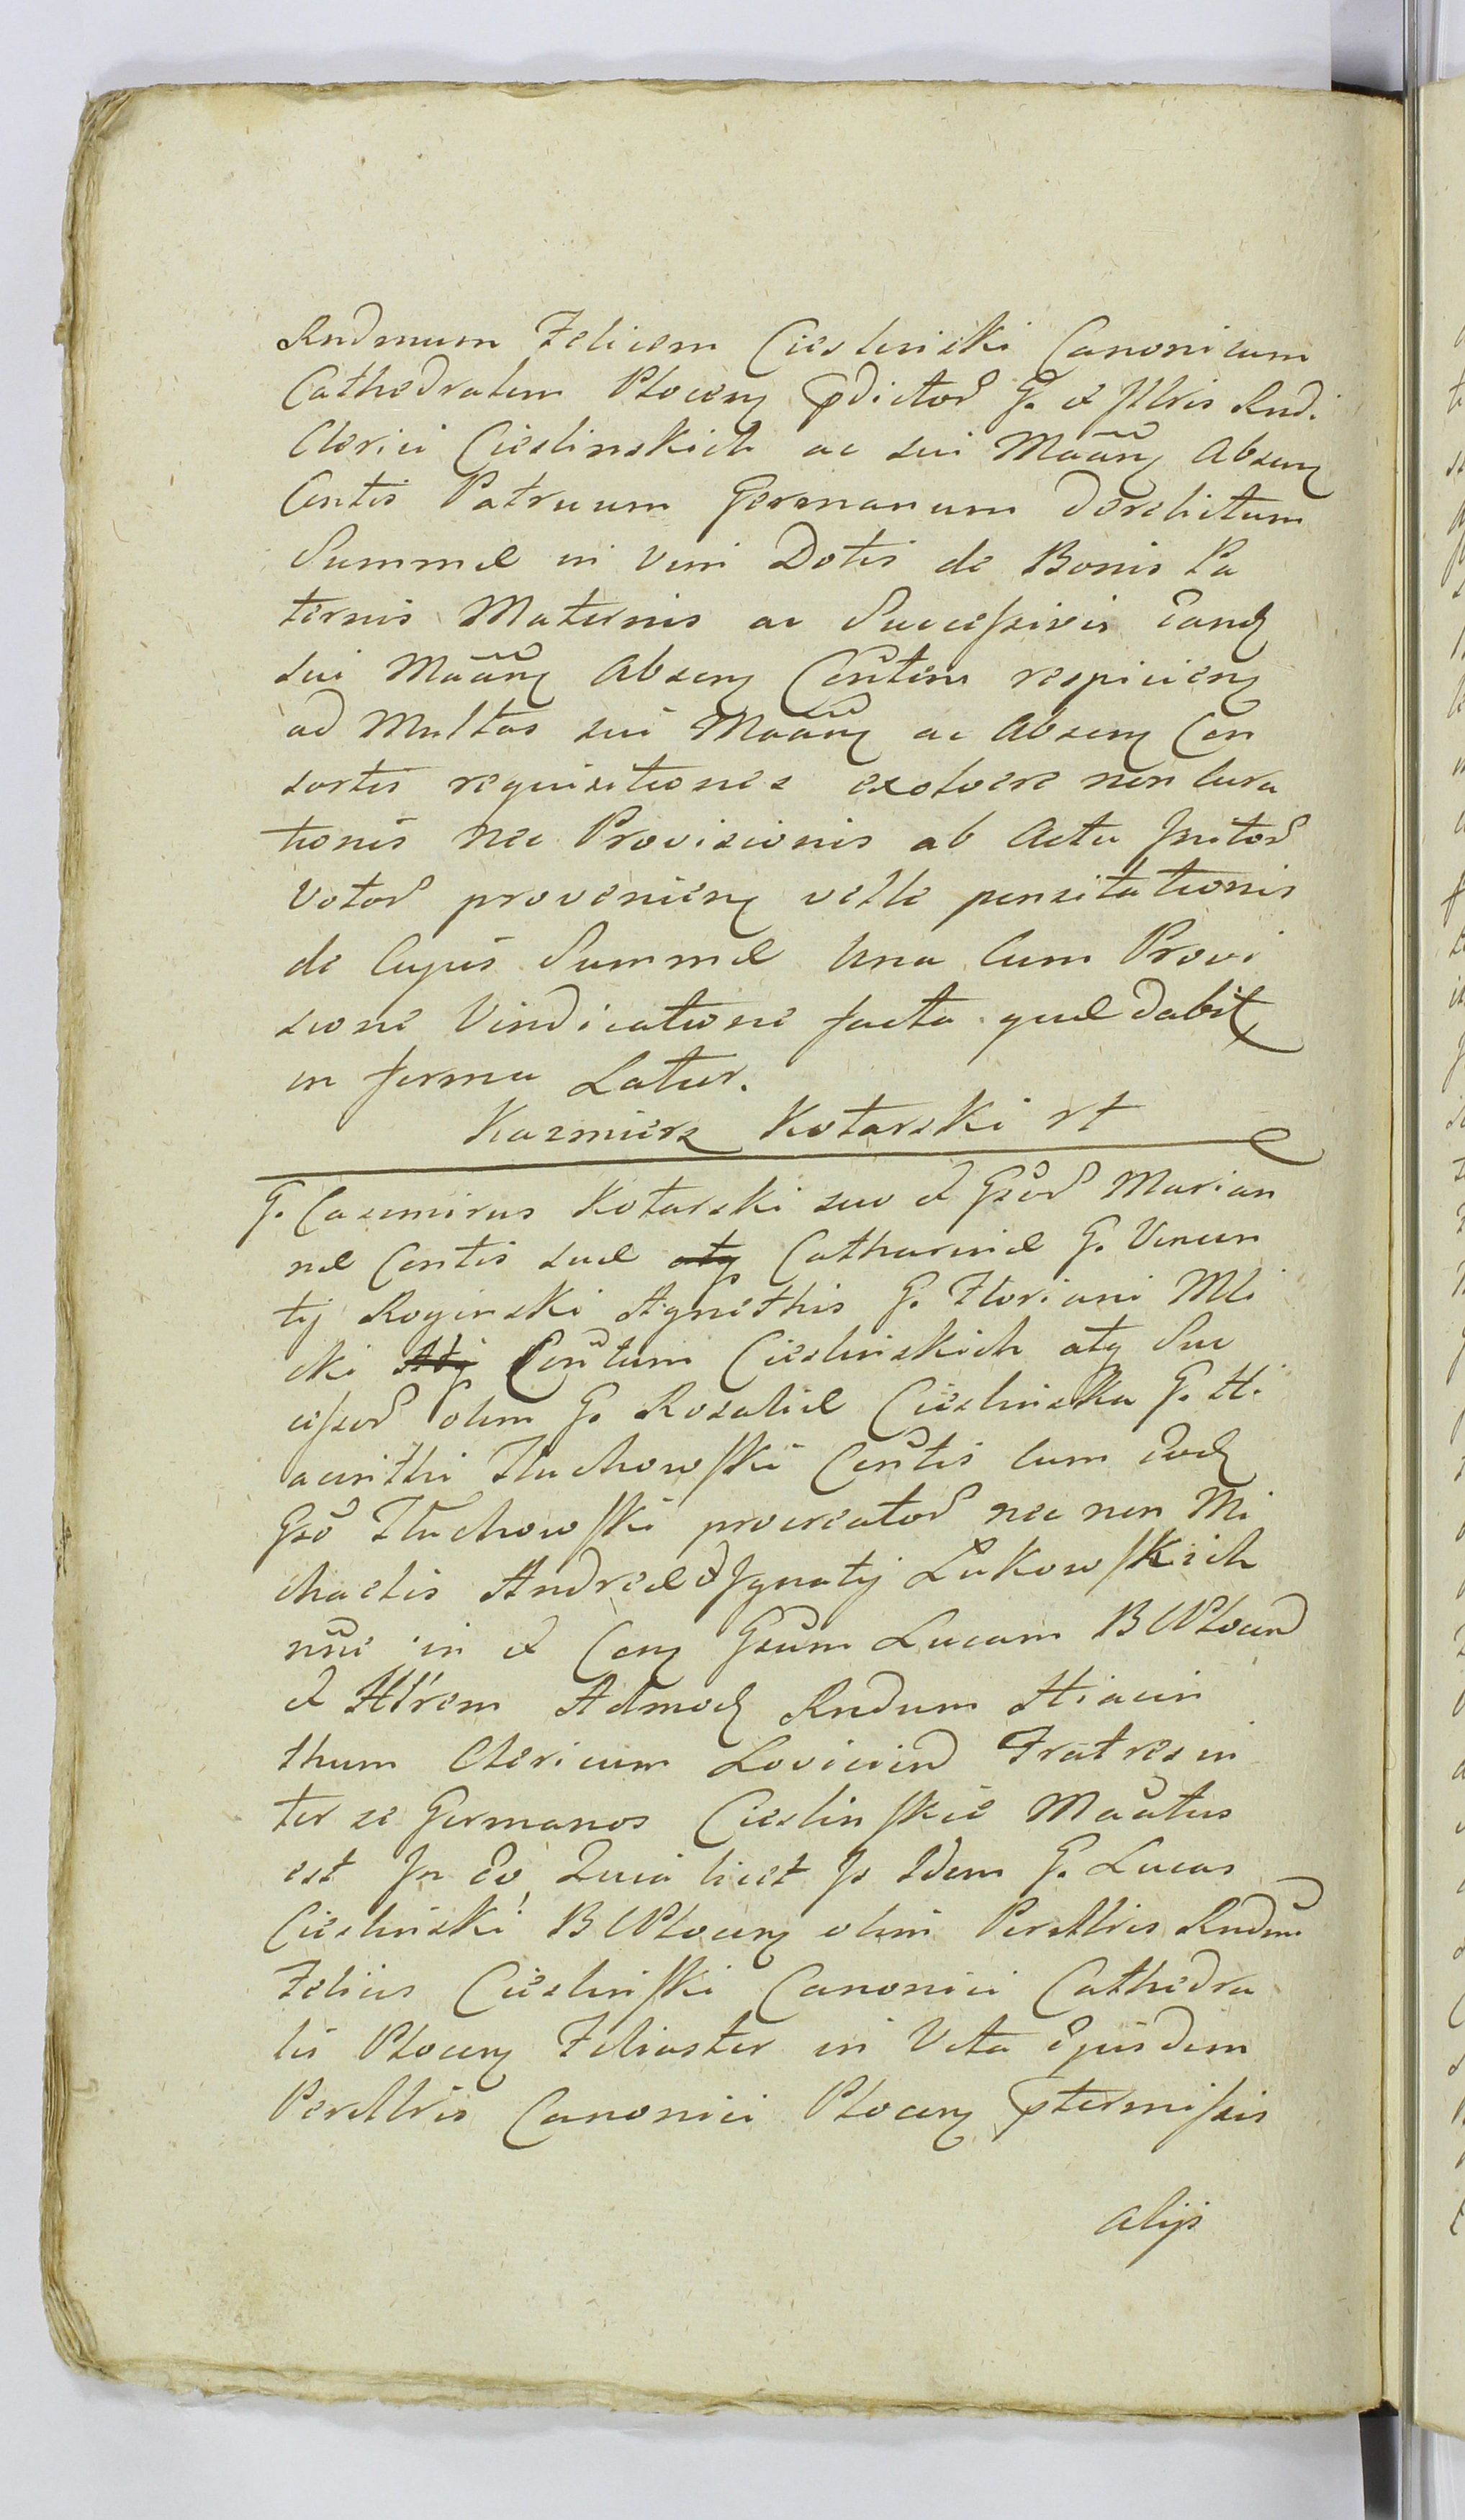 Rndmum Felicem Ciesliński Canonicum
Cathedralem Plocen pdictor G. et Jllris Rndi
Clerici Cieslinskich ac sui Maan Absen
Contis Patruum Germanum derelictum
Summæ in vim Dotis de Bonis Pa
ternis Maternis ac Successivis Eand
sui Maan Absen Contem respicien
ad Multas sui Maan ac Absen Con
sortis requisitiones exolvere non cura
tionis nec Provisionis ab Actu Jnitor
Votor provenien velle pensitationis
de cujus Summæ Una cum Provi
sione Vindicatione facta quæ dabit
in forma Latior.
Kazmierz Kotarski rt
G. Casimirus Kotarski suo et Gsor Marian
næ Contis suæ atq Catharinæ G. Vincen
tij Roginski Agnethis G. Floriani Mli
cki Atq Contum Cieslinskich atq Suc
cessor olim G. Rosaliæ Cieslinska G. Hi
acinthi Tluchowski Contis cum Eod
Gso Tluchowski procreator nec non Mi
chaelis Andreæ et Jgnatij Lukowskich
nne in et Con Gsum Lucam BUPlocen
et Jllrem Admod Rndum Hiacin
thum Clericum Lovicien Fratres in
ter se Germanos Cieslinskie Maatus
est Jn Eo, Quia licet Js Idem G. Lucas
Ciesliński BUPlocen olim Perillris Rndmi
Felicis Cieslinski Canonici Cathedra
lis Plocen Filiaster in Vita Ejusdem
Perillris Canonici Plocen ptermissis
alijs